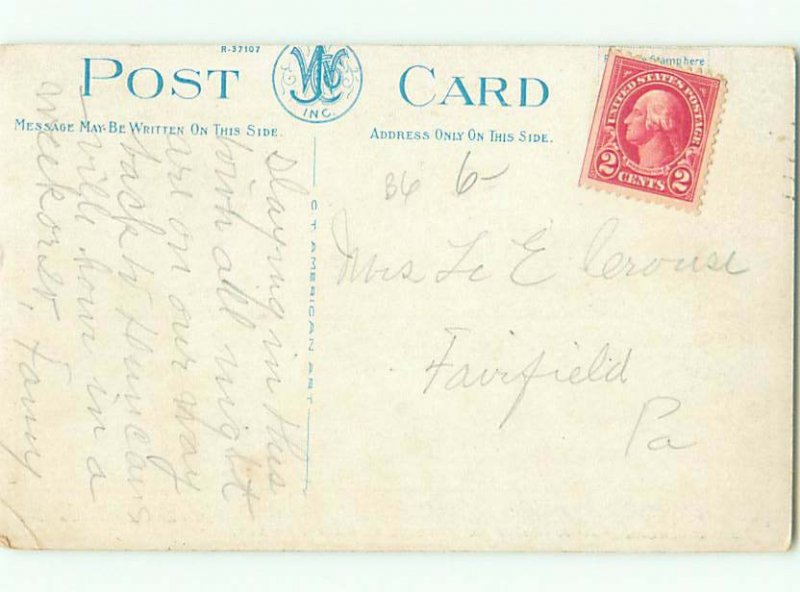 R-37107
POST CARD
INC.
MESSAGE MAY BE WRITTEN ON THIS SIDE.
ADDRESS ONLY ON THIS SIDE.
Stamp here
UNITED STATES POSTAGE
2 CENTS 2
C.T. AMERICAN ART
B6 6-
Mrs Le E Crouse
Fairfield
Pa
staying in this
town all night
are on our way
back to
will be home in a
week or so,